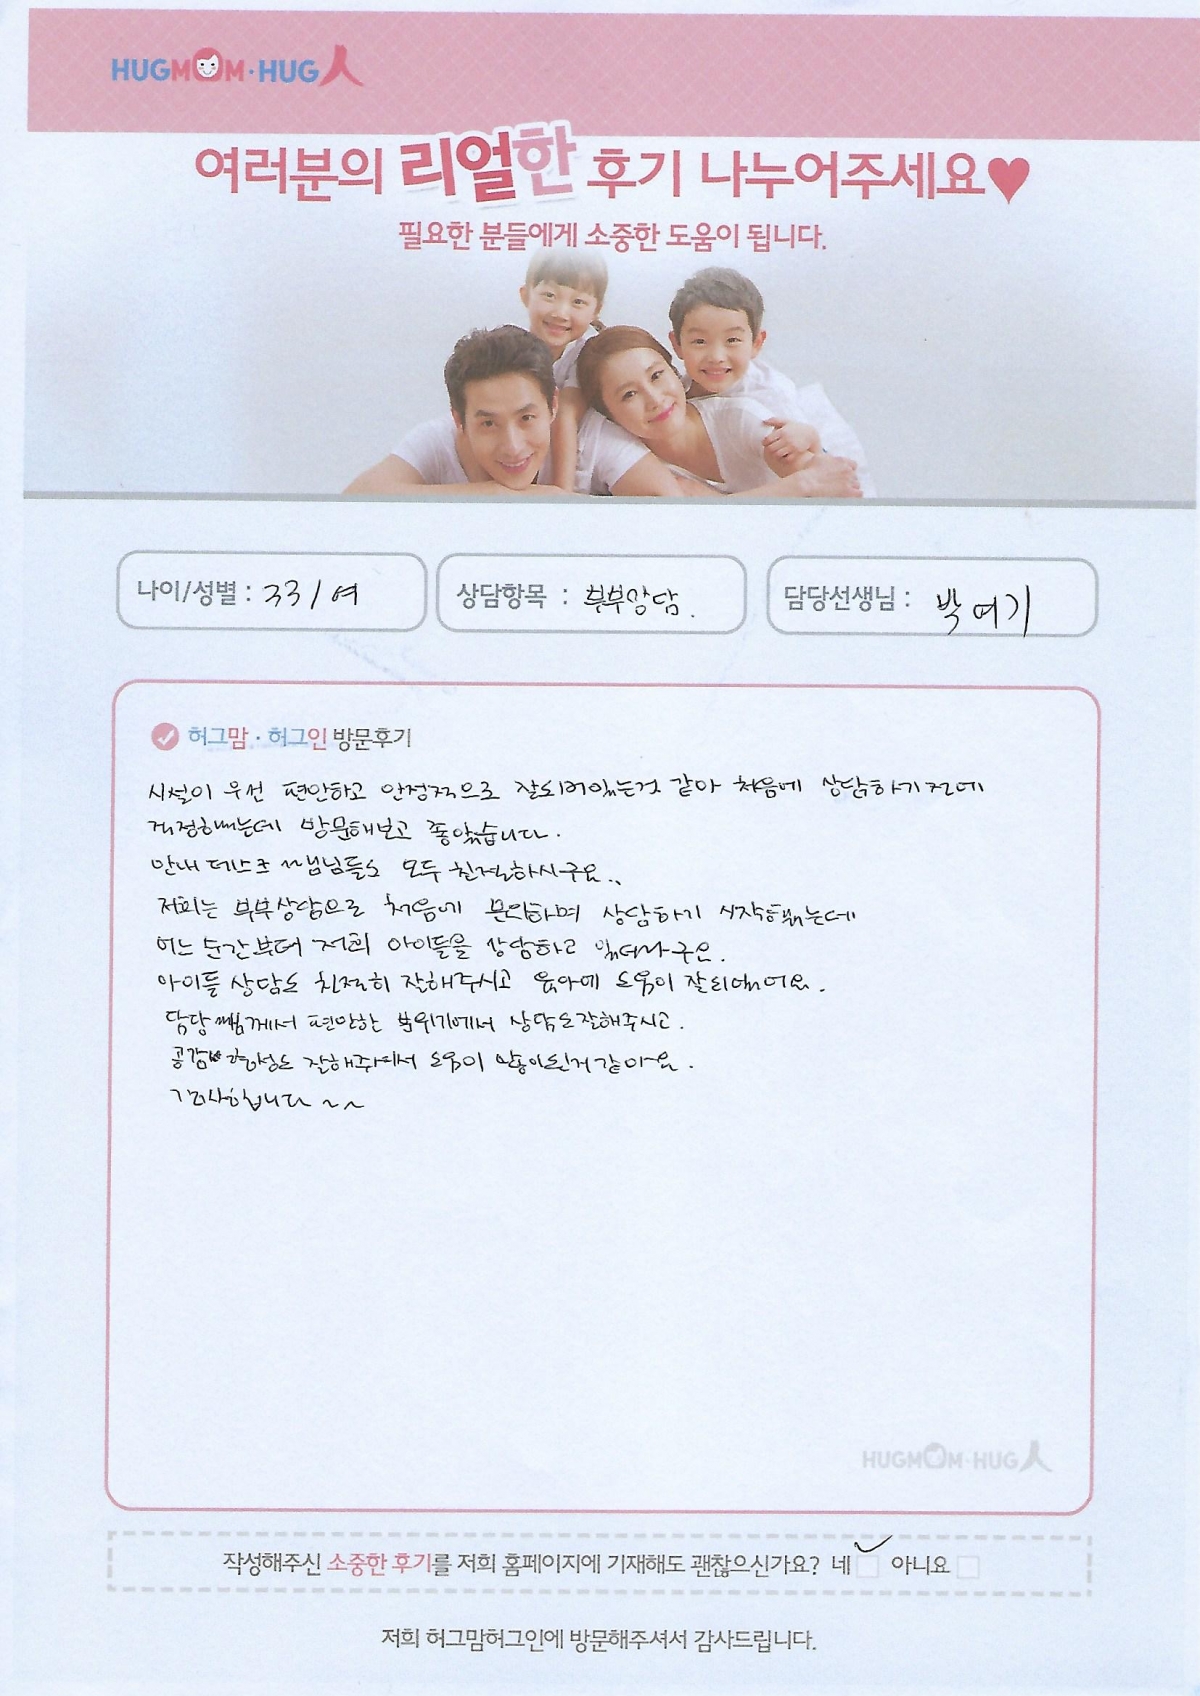 HUGMOM·HUG人
여러분의 리얼한 후기 나누어주세요♥
필요한 분들에게 소중한 도움이 됩니다.
나이/성별 : 33 / 여
상담항목 : 부부상담.
담당선생님 : 박여기
허그맘·허그인 방문후기
시설이 우선 편안하고 안정적으로 잘되어있는것 같아 처음에 상담하기전에
걱정했는데 방문해보고 좋았습니다.
안내 데스크 쌤님들도 모두 친절하시구요..
저희는 부부상담으로 처음에 문의하며 상담하기 시작했는데
어느 순간부터 저희 아이들을 상담하고 있더라구요.
아이들 상담도 친절히 잘해주시고 육아에 도움이 잘되었어요.
담당쌤께서 편안한 분위기에서 상담도잘해주시고.
공감 형성도 잘해주셔서 도움이 많이된거같아요.
감사합니다 ~~
HUGMOM·HUG人
작성해주신 소중한 후기를 저희 홈페이지에 기재해도 괜찮으신가요? 네 ✓ 아니요
저희 허그맘허그인에 방문해주셔서 감사드립니다.